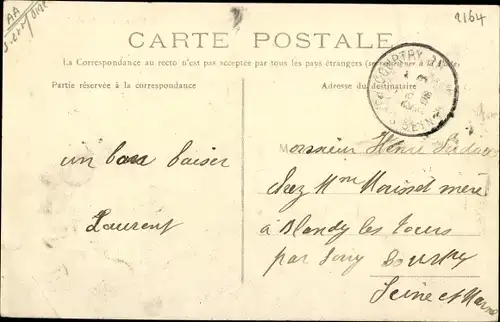 AA
2164
CARTE POSTALE
La Correspondance au recto n'est pas acceptée par tous les pays étrangers (se renseigner à la Poste)
Partie réservée à la correspondance
Adresse du destinataire
un bon baiser
Laurent
Monsieur Henri
chez Mme Moinet mère
à Blandy les Tours
par
Seine et Marne